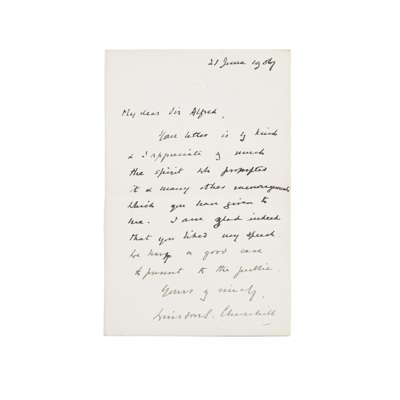 21 June 1907
My dear Sir Alfred,
Your letter is vy kind
& I appreciate vy much
the spirit wh prompted
it & many other encouragements
which you have given to
me. I am glad indeed
that you liked my speech
We have a good case
to present to the public.
Yours vy sincely,
Winston S. Churchill